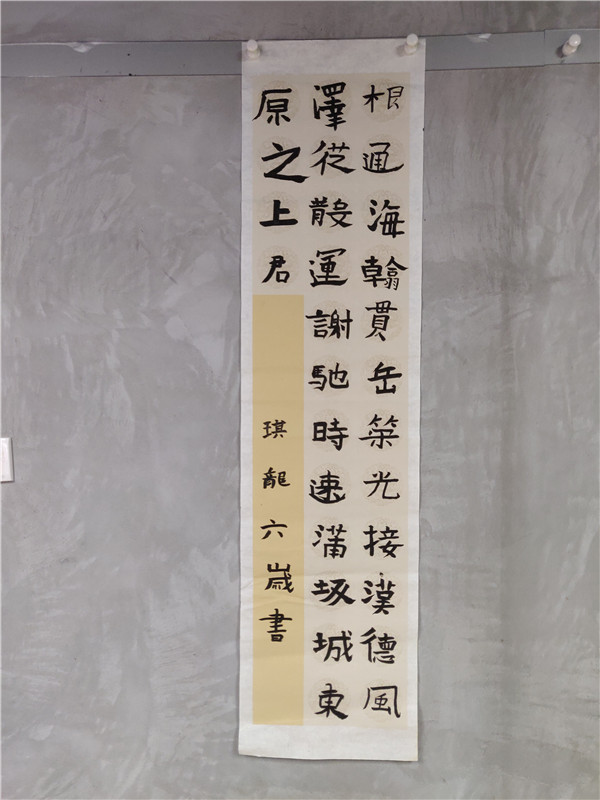 根通海翰貫岳榮光接漢德風
澤從散運謝馳時速蒲坂城東
原之上君
琪龍六歲書